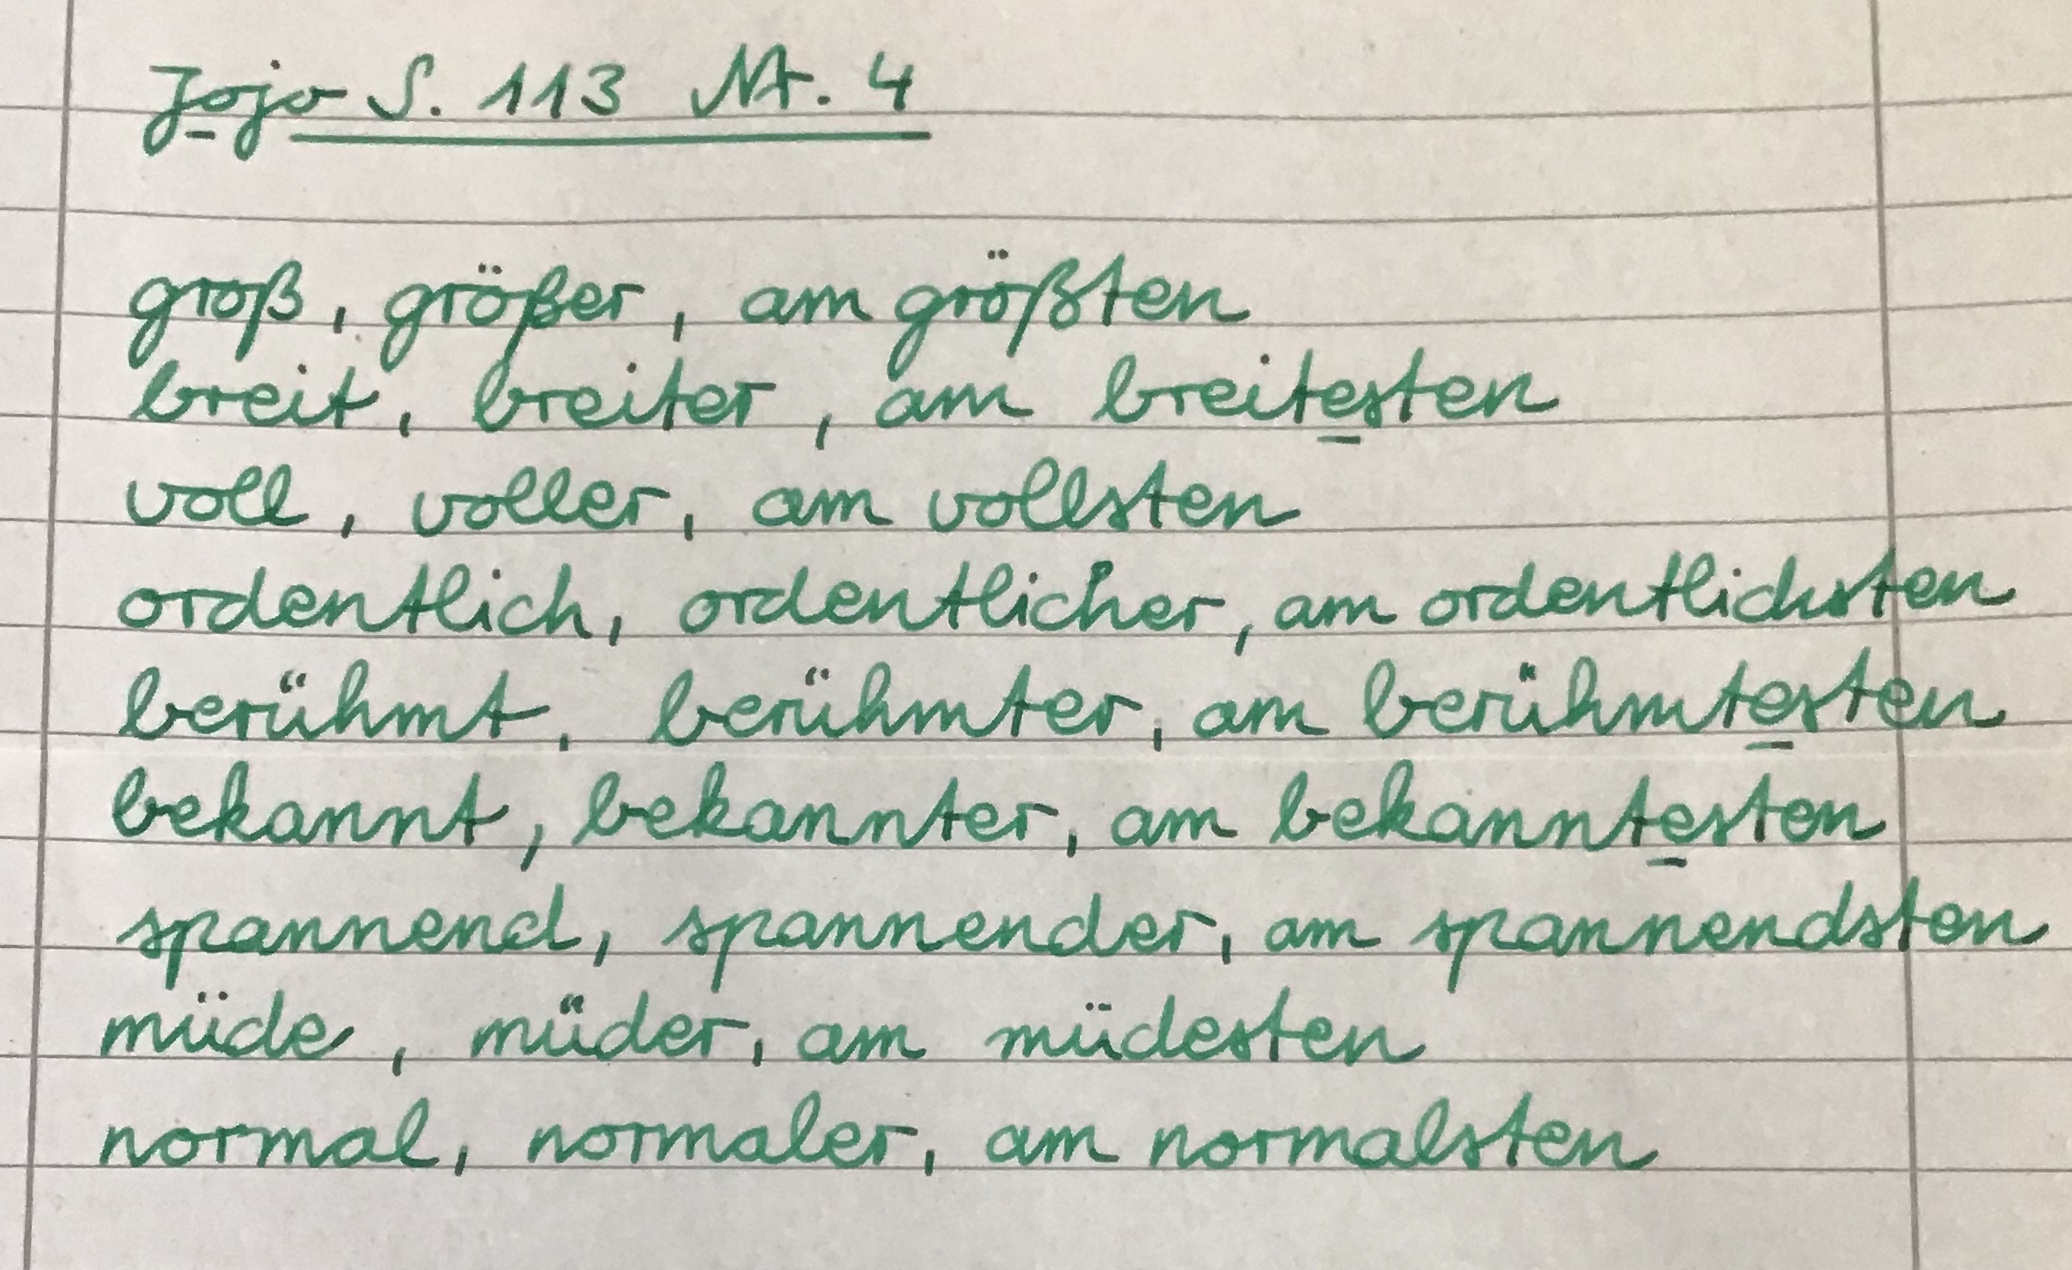 Jojo S. 113 Nr. 4
groß, größer, am größten
breit, breiter, am breitesten
voll, voller, am vollsten
ordentlich, ordentlicher, am ordentlichsten
berühmt, berühmter, am berühmtesten
bekannt, bekannter, am bekanntesten
spannend, spannender, am spannendsten
müde, müder, am müdesten
normal, normaler, am normalsten